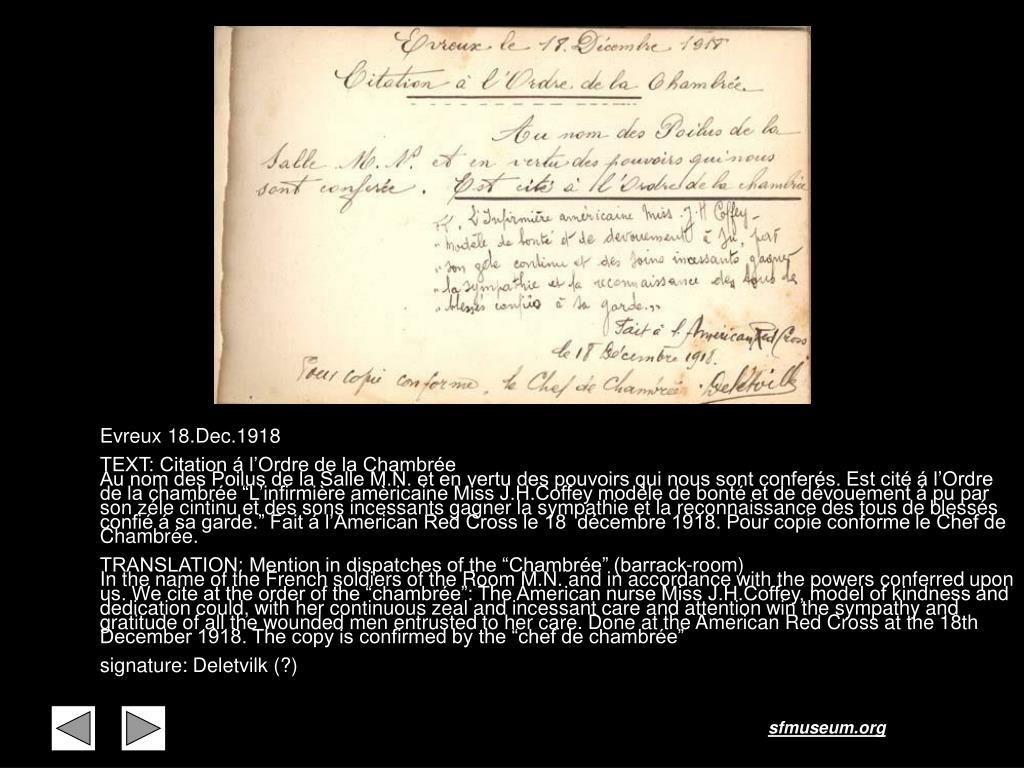 Evreux le 18. Décembre 1918
Citation à l'Ordre de la Chambrée.
Au nom des Poilus de la
Salle M. N. et en vertu des pouvoirs qui nous
sont conferée. Est cité à l'Ordre de la chambrée
L'Infirmière américaine Miss J.H Coffey
"modèle de bonté et de dévouement à pu, par
"son zèle continu et des soins incessants gagner
"la sympathie et la reconnaissance des tous de
"blessés confiés à sa garde."
Fait à l'American Red Cross
le 18 Décembre 1918.
Pour copie conforme, le Chef de Chambrée
Evreux 18.Dec.1918
TEXT: Citation á l’Ordre de la Chambrée
Au nom des Poilus de la Salle M.N. et en vertu des pouvoirs qui nous sont conferés. Est cité á l’Ordre
de la chambrée “L’infirmière américaine Miss J.H.Coffey modèle de bonté et de dévouement á pu par
son zéle cintinu et des sons incessants gagner la sympathie et la reconnaissance des tous de blessés
confié á sa garde.” Fait á l’American Red Cross le 18 décembre 1918. Pour copie conforme le Chef de
Chambrée.
TRANSLATION: Mention in dispatches of the “Chambrée” (barrack-room)
In the name of the French soldiers of the Room M.N. and in accordance with the powers conferred upon
us. We cite at the order of the “chambrée”: The American nurse Miss J.H.Coffey, model of kindness and
dedication could, with her continuous zeal and incessant care and attention win the sympathy and
gratitude of all the wounded men entrusted to her care. Done at the American Red Cross at the 18th
December 1918. The copy is confirmed by the “chef de chambrée”
signature: Deletvilk (?)
sfmuseum.org